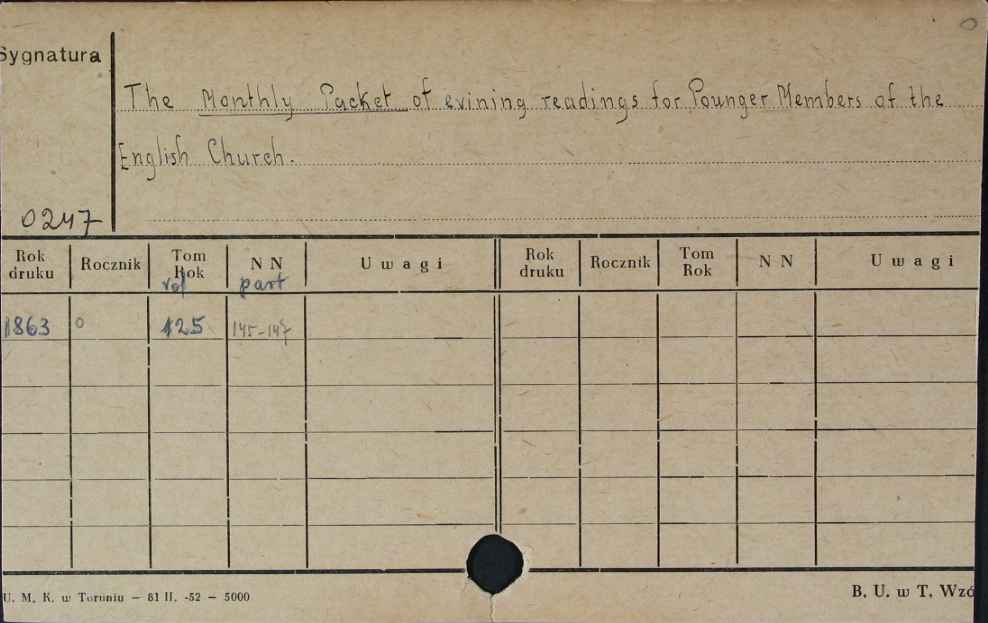 0
Sygnatura
The Monthly Packet of evining readings for Pounger Members of the
English Church.
0247
Rok druku Rocznik Tom Rok NN Uwagi Rok druku Rocznik Tom Rok NN Uwagi
vol part
1863 0 125 145-147
U. M. K. w Toruniu — 81 II. -52 — 5000 B. U. w T. Wzó